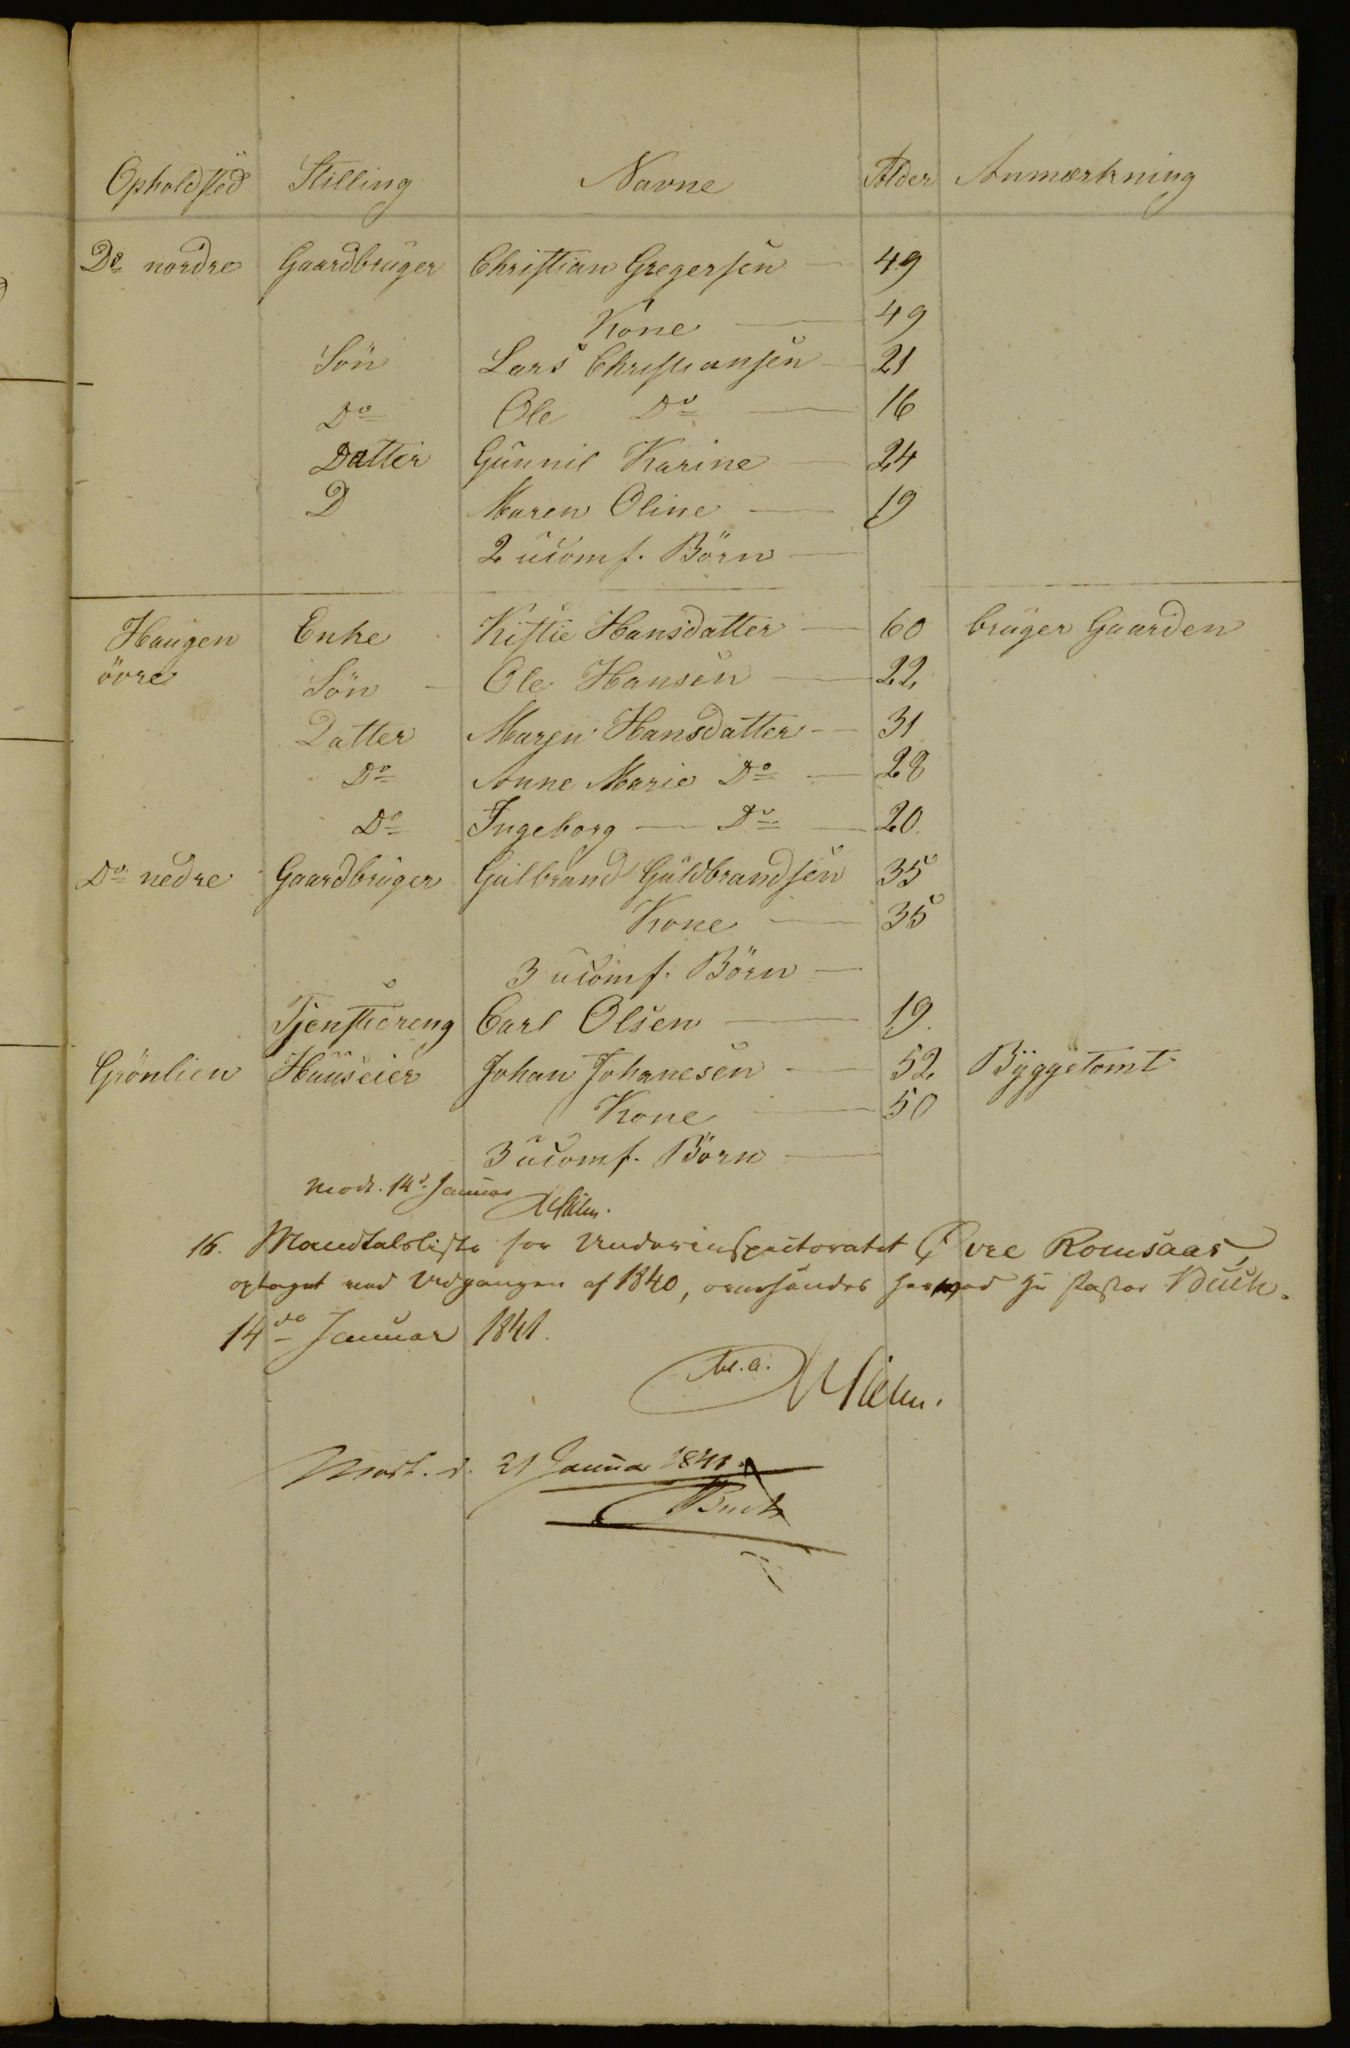 Opholdsted Stilling Navne Alder Anmærkning
Do nordre Gaardbruger Christian Gregersen — 49
Kone — 49
Sön Lars Christiansen — 21
Do Ole Do — 16
Datter Gunnil Karine — 24
D Maren Oline — 19
2 ucomf. Börn —
Haugen Enke Kistie Hansdatter — 60 bruger Gaarden
övre Sön — Ole Hansen — 22
Datter Maren Hansdatter — 31
Do Anne Marie Do — 28
Do Ingeborg — Do — 20
Do nedre Gaardbruger Gulbrand Guldbrandsen 35
Kone — 35
3 ucomf. Börn —
Tjenstedreng Carl Olsen — 19.
Grönlien Huuseier Johan Johanesen — 52 Byggetomt
Kone — 50
3 ucomf. Börn —
Modt. 14d Januar
16. Mandtalsliste for Underinspectoratet Øvre Romsaas,
optaget ved Udgangen af 1840, oversendes herved Hr Pastor Buch.
14de Januar 1841.
Modt. d. 21 Januar 1841.
Buch